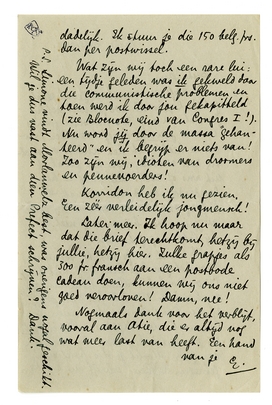 dadelijk. Ik stuur je die 150 belg. frs.
dan per postwissel.
Wat zijn wij toch een rare lui:
een tijdje geleden was ik gekweld door
die communistische problemen en
toen werd ik door jou gekapitteld
(zie Blocnote, eind van Congres I!).
Nu word jij door de massa "gehan-
teerd" en ik begrijp er niets van!
Zoo zijn wij, idioten van droomers
en pennevoerders!
Korridon heb ik nu gezien.
Een zéér verleidelijk jongmensch!
Later meer. Ik hoop nu maar
dat die brief terechtkomt, hetzij bij
jullie, hetzij hier. Zulke grapjes als
500 fr. fransch aan een postbode
cadeau doen, kunnen wij ons niet
goed veroorloven! Damn, nee!
Nogmaals dank voor het verblijf,
vooral aan Atie, die er altijd nog
wat meer last van heeft. Een hand
van je E.
P.S. Simone vindt best, was overigens nogal geschikt.
Wil je dus naar aan dien Prefect schrijven? Dank!